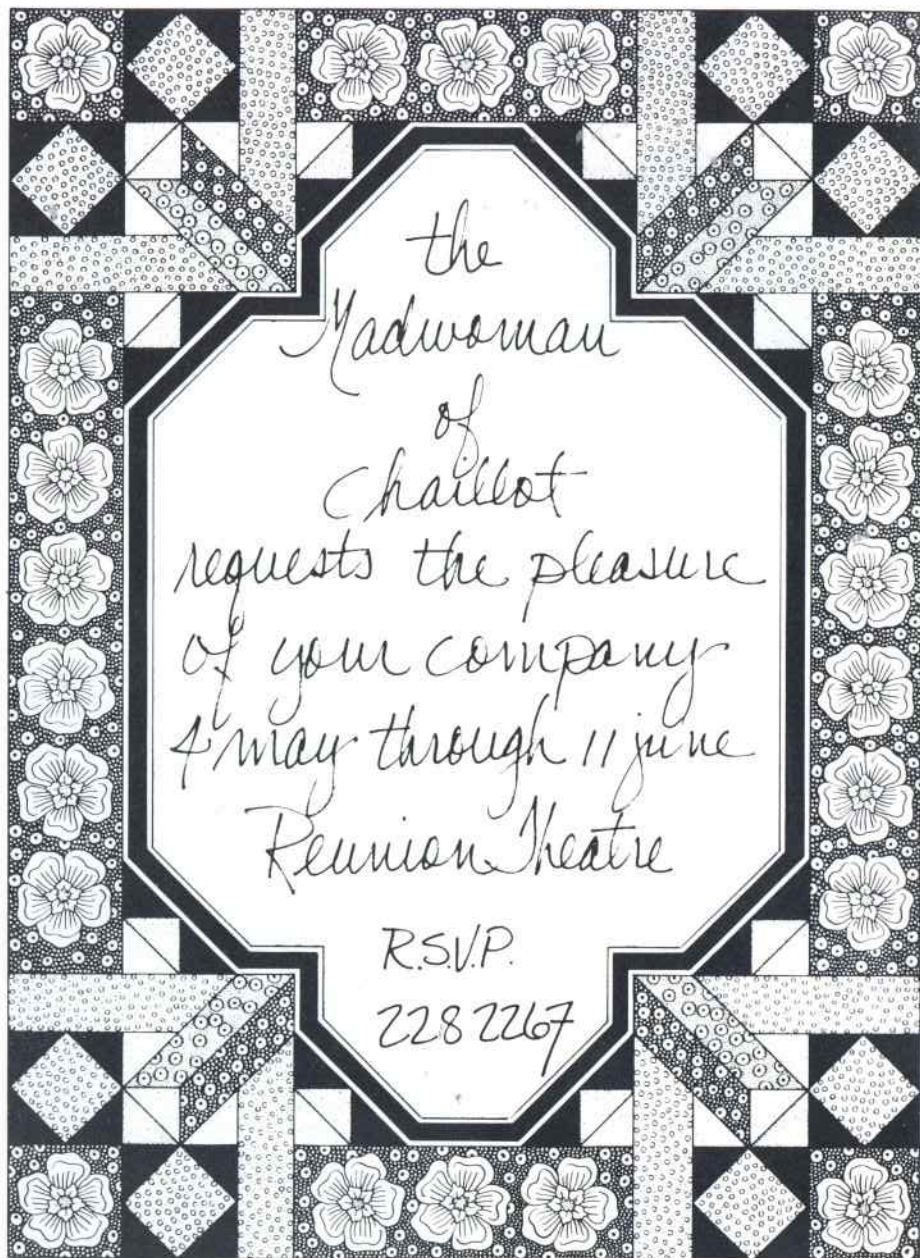 the
Madwoman
of
Chaillot
requests the pleasure
of your company
4 may through 11 june
Reunion Theatre
R.S.V.P.
228 2267